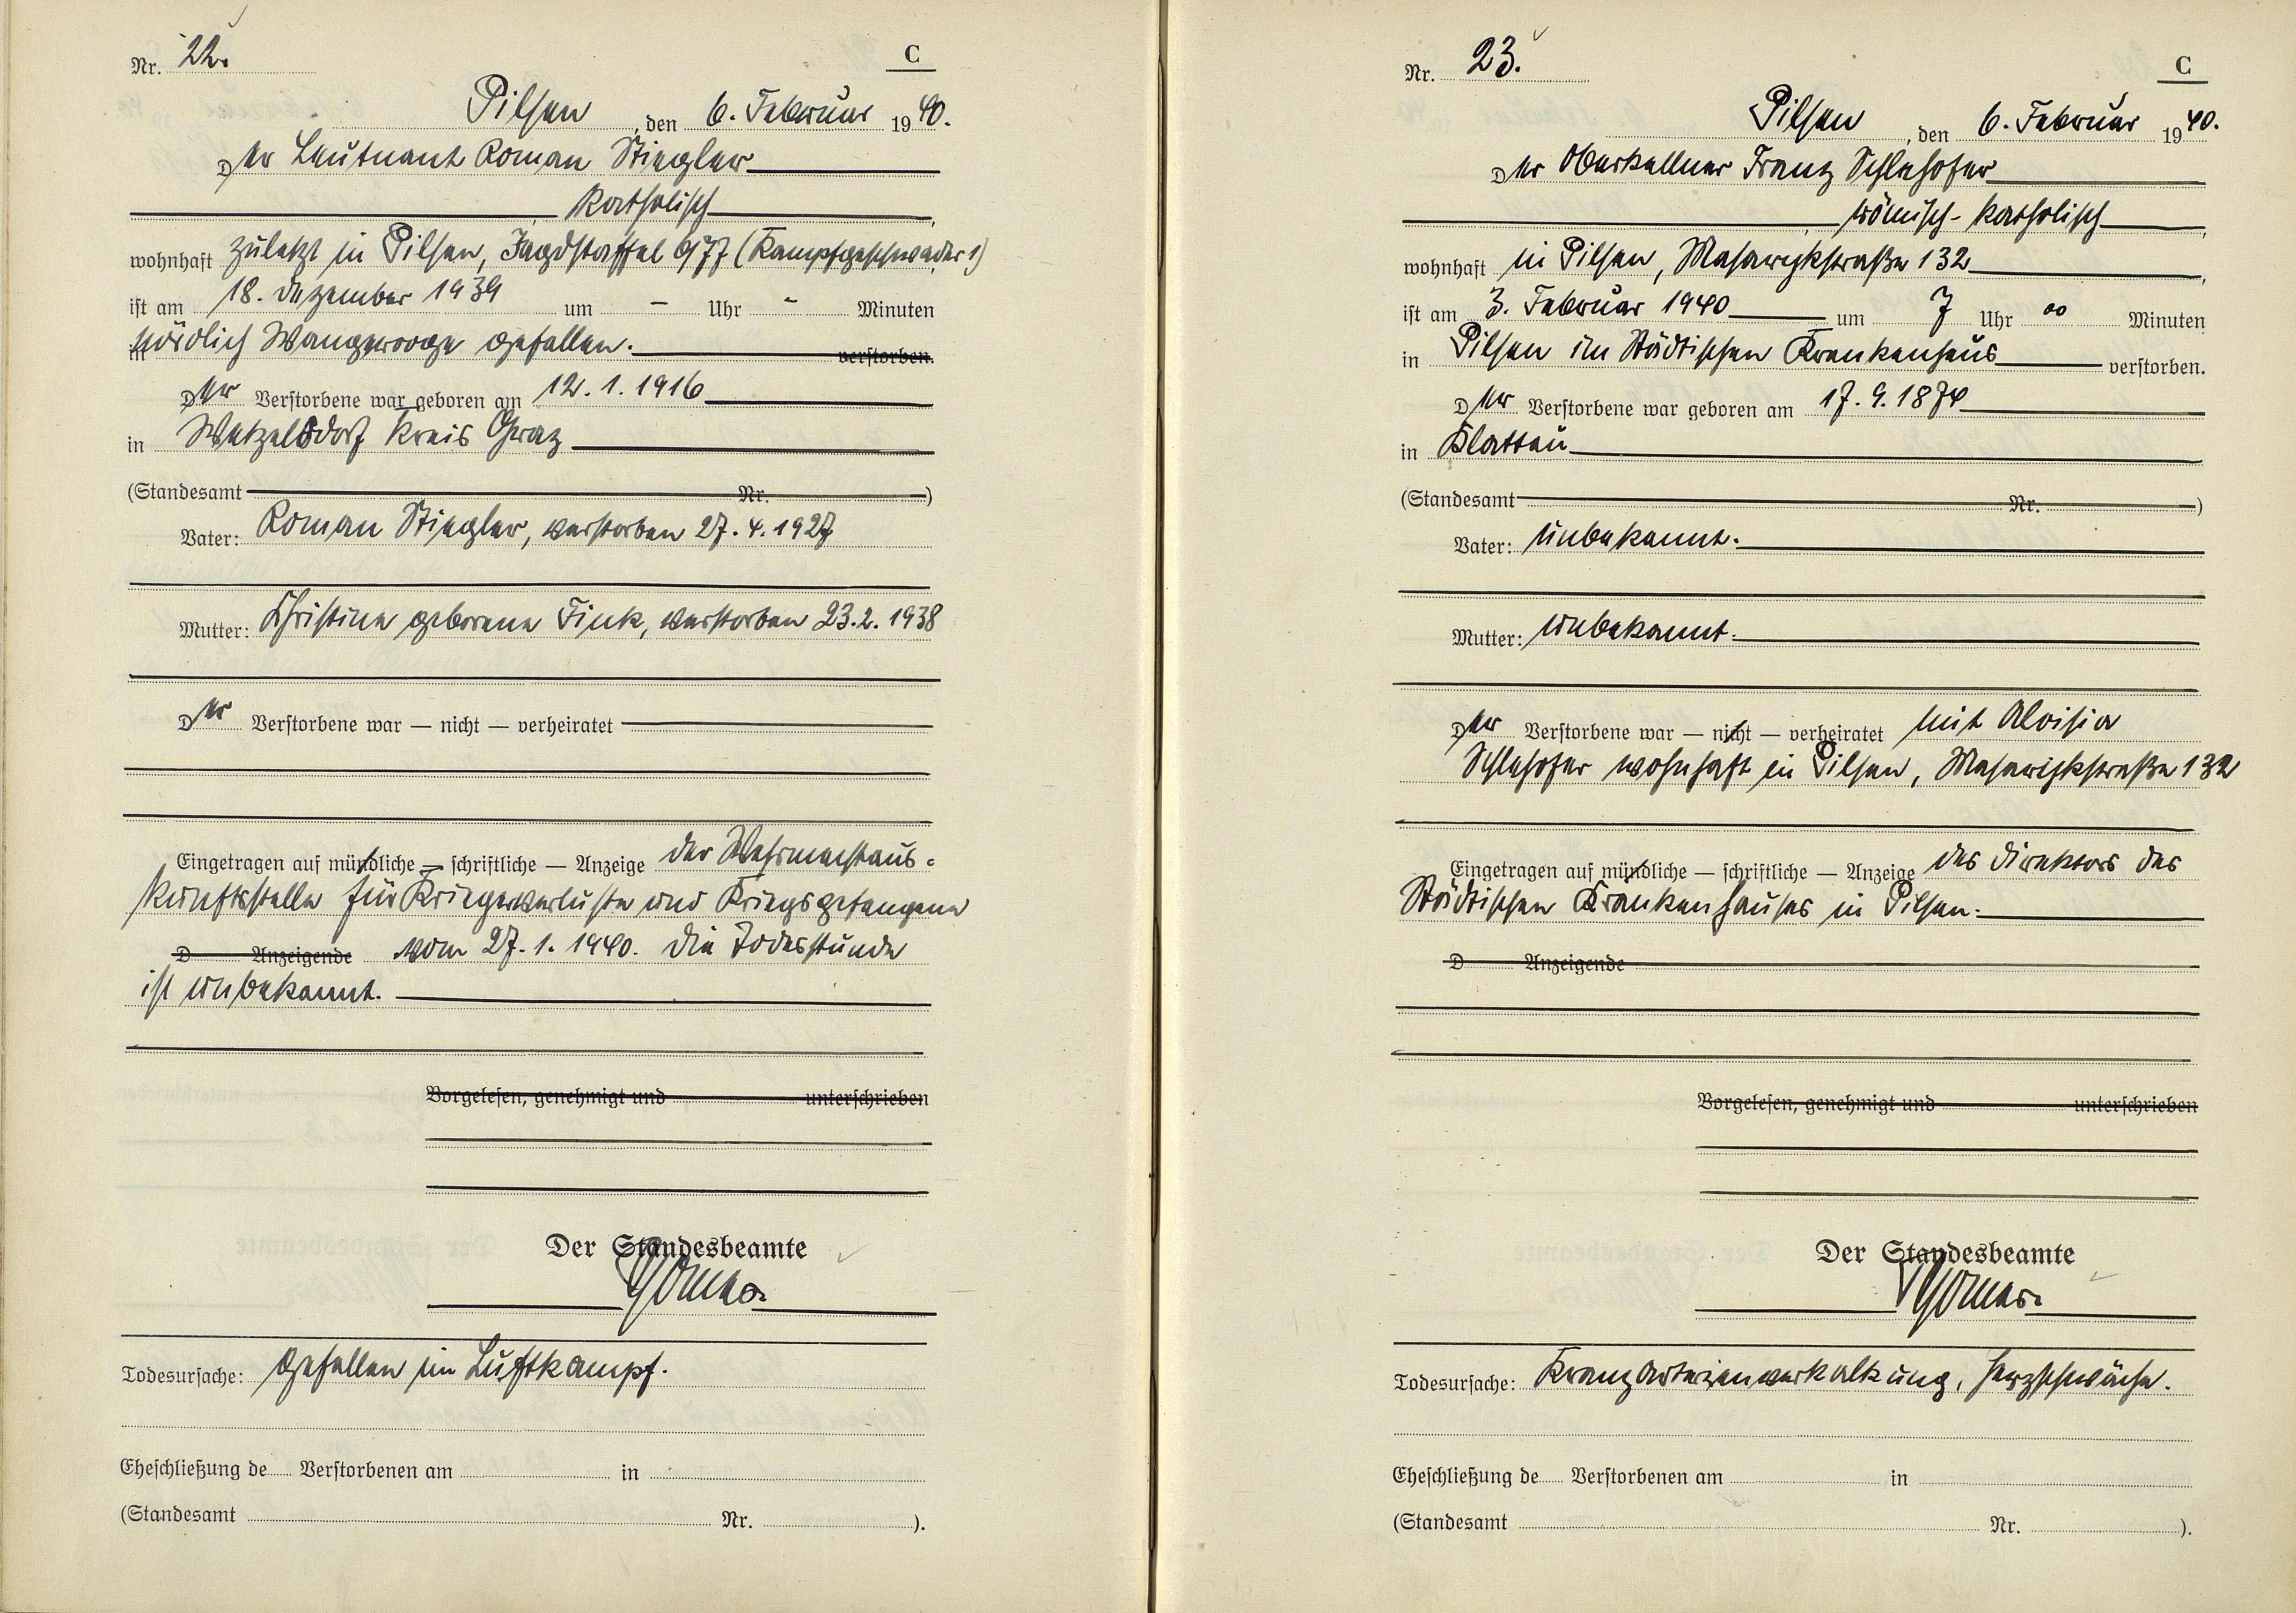 Nr. 22.
C
Pilsen, den 6. Februar 1940.
Der Leutnant Roman Stiegler
katholisch,
wohnhaft zuletzt in Pilsen, Jagdstaffel 6/77 (Kampfgeschwader 1)
ist am 18. Dezember 1939 um - Uhr - Minuten
in nördlich Wangerooge gefallen. verstorben.
Der Verstorbene war geboren am 12.1.1916
in Wetzelsdorf Kreis Graz
(Standesamt Nr. )
Vater: Roman Stiegler, verstorben 27.4.1927
Mutter: Christine geborene Fink, verstorben 23.2.1938
Der Verstorbene war — nicht — verheiratet
Eingetragen auf mündliche — schriftliche — Anzeige der Wehrmachtaus-
kunftstelle für Kriegerverluste und Kriegsgefangene
D Anzeigende vom 27.1.1940. Die Todesstunde
ist unbekannt.
Vorgelesen, genehmigt und unterschrieben
Der Standesbeamte
Todesursache: Gefallen im Luftkampf.
Eheschließung de Verstorbenen am in
(Standesamt Nr. ).
Nr. 23.
C
Pilsen, den 6. Februar 1940.
Der Oberkellner Franz Schlehofer
, römisch-katholisch,
wohnhaft in Pilsen, Masarykstraße 132,
ist am 3. Februar 1940 um 7 Uhr 00 Minuten
in Pilsen im Städtischen Krankenhaus verstorben.
Der Verstorbene war geboren am 17.9.1874
in Klattau
(Standesamt Nr. )
Vater: unbekannt.
Mutter: unbekannt.
Der Verstorbene war — nicht — verheiratet mit Aloisia
Schlehofer wohnhaft in Pilsen, Masarykstraße 132
Eingetragen auf mündliche — schriftliche — Anzeige des Direktors des
Städtischen Krankenhauses in Pilsen.
D Anzeigende
Vorgelesen, genehmigt und unterschrieben
Der Standesbeamte
Todesursache: Kranzarterienverkalkung, Herzschwäche.
Eheschließung de Verstorbenen am in
(Standesamt Nr. ).